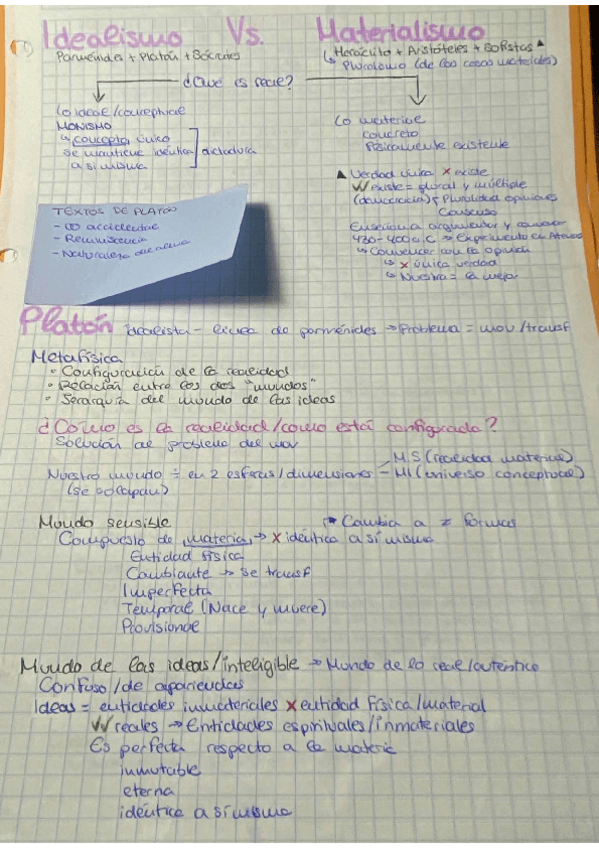 Idealismo Vs. Materialismo
Parménides + Platón + Sócrates
(Heráclito + Aristóteles + Sofistas ▲
↳ Pluralismo (de las cosas materiales)
¿Qué es real?
Lo ideal/conceptual
MONISMO
↳ concepto único
se mantiene idéntica
a sí misma
dictadura
Lo material
concreto
físicamente existente
▲ Verdad única × existe
W existe = plural y múltiple
(democracia) Pluralidad opiniones
Consenso
Enseñaba argumentar y convencer
430-400 a.C → Experimento en Atenas
↳ Convencer con la opinión
↳ × única verdad
↳ Nuestra = la mejor
TEXTOS DE PLATÓN
- Reminiscencia
- Naturaleza del alma
Platón idealista - línea de parménides → Problema = mov/transf
Metafísica
• Configuración de la realidad
• Relación entre los dos "mundos"
• Jerarquía del mundo de las ideas
¿Cómo es la realidad/como está configurada?
Solución al problema del mov
Nuestro mundo ÷ en 2 esferas/dimensiones
(se solapan)
- MS (realidad material)
- MI (universo conceptual)
Mundo sensible
→ Cambia a ≠ formas
Compuesto de materia, → × idéntica a sí misma
Entidad física
Cambiante → se transf
Imperfecta
Temporal (Nace y muere)
Provisional
Mundo de las ideas/inteligible → Mundo de lo real/auténtico
Confuso/de apariencias
Ideas = entidades inmateriales × entidad física/material
W reales → Entidades espirituales/inmateriales
Es perfecta respecto a la materia
inmutable
eterna
idéntica a sí misma